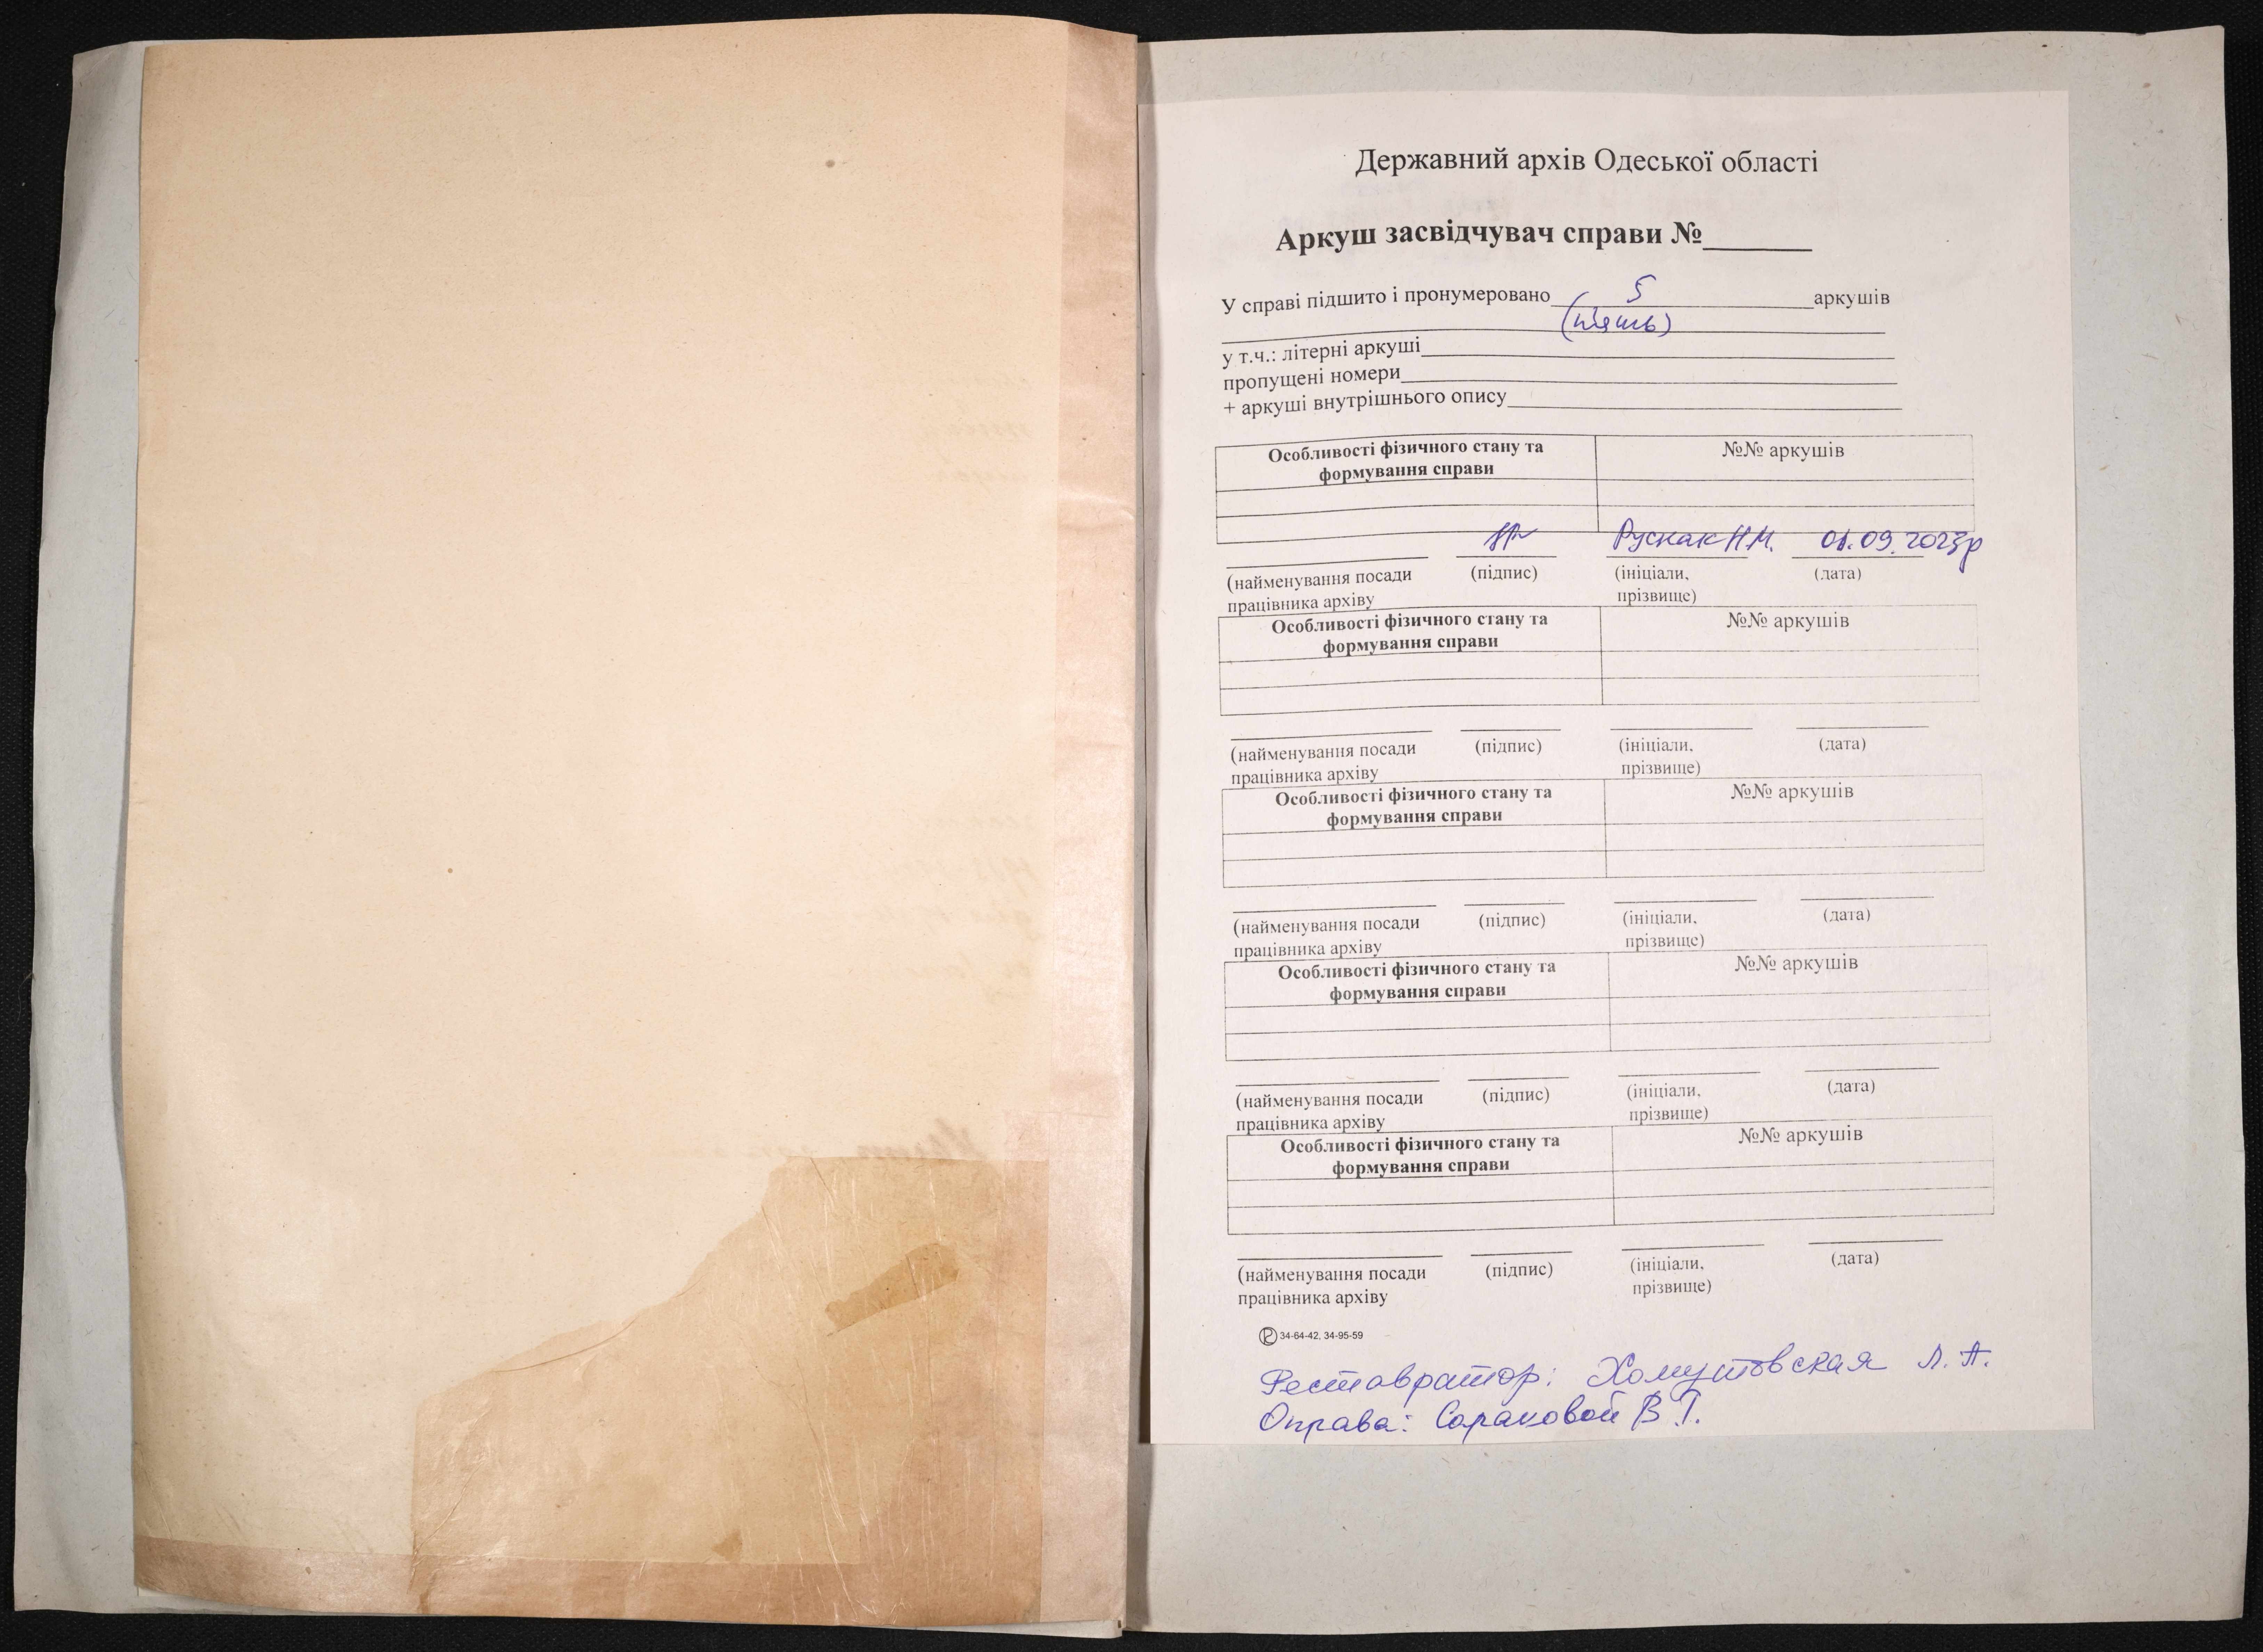 Державний архів Одеської області
Аркуш засвідчувач справи №______
У справі підшито і пронумеровано 5 аркушів
(п'ять)
у т.ч.: літерні аркуші
пропущені номери
+ аркуші внутрішнього опису
Особливості фізичного стану та №№ аркушів
формування справи
Руснак Н.М. 01.09.2023р
(найменування посади (підпис) (ініціали, (дата)
працівника архіву прізвище)
Особливості фізичного стану та №№ аркушів
формування справи
(найменування посади (підпис) (ініціали, (дата)
працівника архіву прізвище)
Особливості фізичного стану та №№ аркушів
формування справи
(найменування посади (підпис) (ініціали, (дата)
працівника архіву прізвище)
Особливості фізичного стану та №№ аркушів
формування справи
(найменування посади (підпис) (ініціали, (дата)
працівника архіву прізвище)
Особливості фізичного стану та №№ аркушів
формування справи
(найменування посади (підпис) (ініціали, (дата)
працівника архіву прізвище)
34-64-42, 34-95-59
Реставратор: Хомутовская Л. А.
Оправа: В.Г.